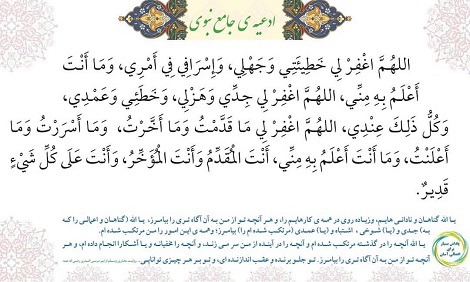 ادعیه ی جامع نبوی
اللهُمَّ اغْفِرْ لِي خَطِيئَتِي وَجَهْلِي، وَإِسْرَافِي فِي أَمْرِي، وَمَا أَنْتَ
أَعْلَمُ بِهِ مِنِّي، اللهُمَّ اغْفِرْ لِي جِدِّي وَهَزْلِي، وَخَطَئِي وَعَمْدِي،
وَكُلُّ ذَلِكَ عِنْدِي، اللهُمَّ اغْفِرْ لِي مَا قَدَّمْتُ وَمَا أَخَّرْتُ، وَمَا أَسْرَرْتُ وَمَا
أَعْلَنْتُ، وَمَا أَنْتَ أَعْلَمُ بِهِ مِنِّي، أَنْتَ الْمُقَدِّمُ وَأَنْتَ الْمُؤَخِّرُ، وَأَنْتَ عَلَى كُلِّ شَيْءٍ
قَدِيرٌ.
یا الله گناهان و نادانی هایم، وزیاده روی در همه ی کارهایم را، و هر آنچه تو از من به آن آگاه تری را بیامرز، یا الله (گناهان و اعمالی را که
به) جدی و (یا) شوخی ، اشتباه و (یا) عمدی (مرتکب شده ام را) بیامرز؛ وهمه ی این امور را من مرتکب شده ام.
یا الله آنچه را در گذشته مرتکب شده ام و آنچه را در آینده از من سر می زند، و آنچه را خفیانه و یا آشکارا انجام داده ام، و هر
آنچه تو از من به آن آگاه تری را بیامرز. تو جلو برنده و عقب اندازنده ای، و تو بر هر چیزی توانایی.